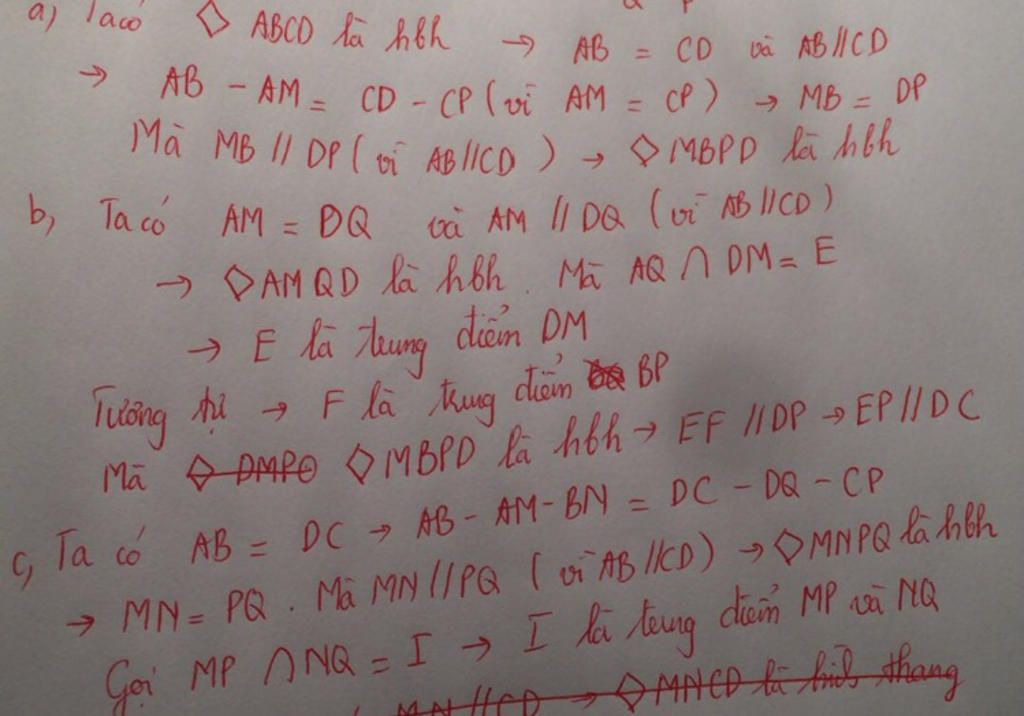 a) Ta có ◇ ABCD là hbh → AB = CD và AB//CD
→ AB - AM = CD - CP (vì AM = CP) → MB = DP
Mà MB // DP (vì AB//CD) → ◇MBPD là hbh
b, Ta có AM = DQ và AM // DQ (vì AB//CD)
→ ◇AMQD là hbh. Mà AQ ∩ DM = E
→ E là trung điểm DM
Tương tự → F là trung điểm BP
Mà ◇ DMPO ◇MBPD là hbh → EF //DP → EP//DC
c, Ta có AB = DC → AB - AM - BN = DC - DQ - CP
→ MN = PQ. Mà MN//PQ (vì AB//CD) → ◇MNPQ là hbh
Gọi MP ∩ NQ = I → I là trung điểm MP và NQ
MN//CD → ◇MNCD là hình thang